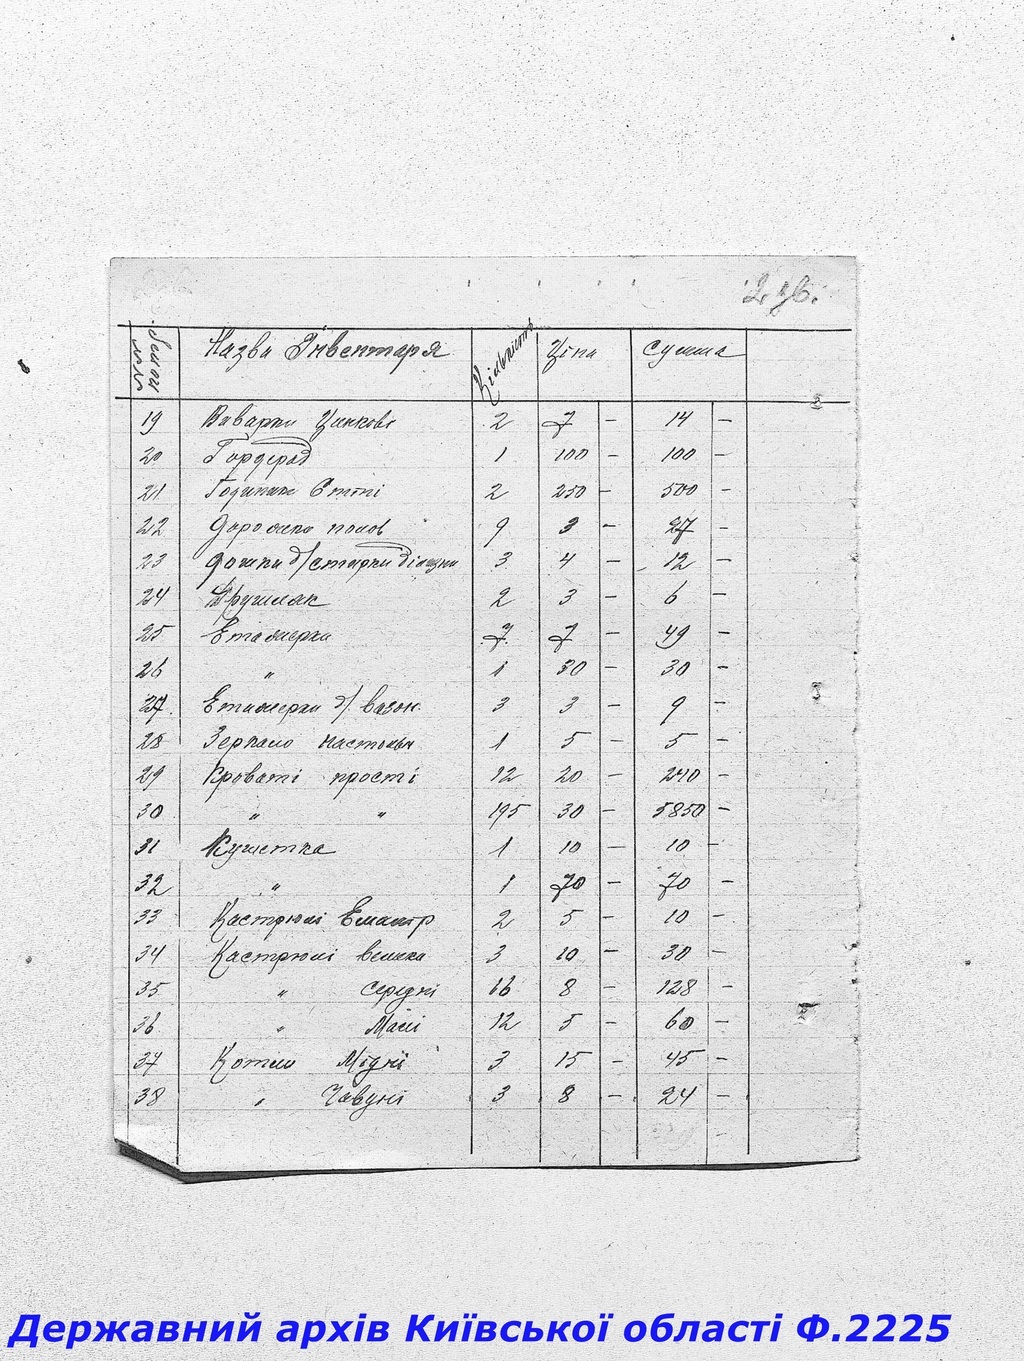 Назва Інвентаря Кількість Ціна Сумма
19 Виварки Цинкові 2 7 — 14 —
20 Гордероб 1 100 — 100 —
21 Годинник Стіні 2 250 — 500 —
22 Дорожка полов 9 3 — 27 —
23 Дошки д/стирки білизни 3 4 — 12 —
24 Друшляк 2 3 — 6 —
25 Етажерка 7 7 — 49 —
26 " 1 30 — 30 —
27 Етажерки д/ вазон. 3 3 — 9 —
28 Зеркало настольн 1 5 — 5 —
29 Кроваті прості 12 20 — 240 —
30 " " 195 30 — 5850 —
31 Кушетка 1 10 — 10 —
32 " 1 70 — 70 —
33 Кастрюлі Емалір 2 5 — 10 —
34 Кастрюлі велика 3 10 — 30 —
35 " Середні 16 8 — 128 —
36 " Малі 12 5 — 60 —
37 Котли Мідні 3 15 — 45 —
38 " Чавуні 3 8 — 24 —
Державний архів Київської області Ф.2225